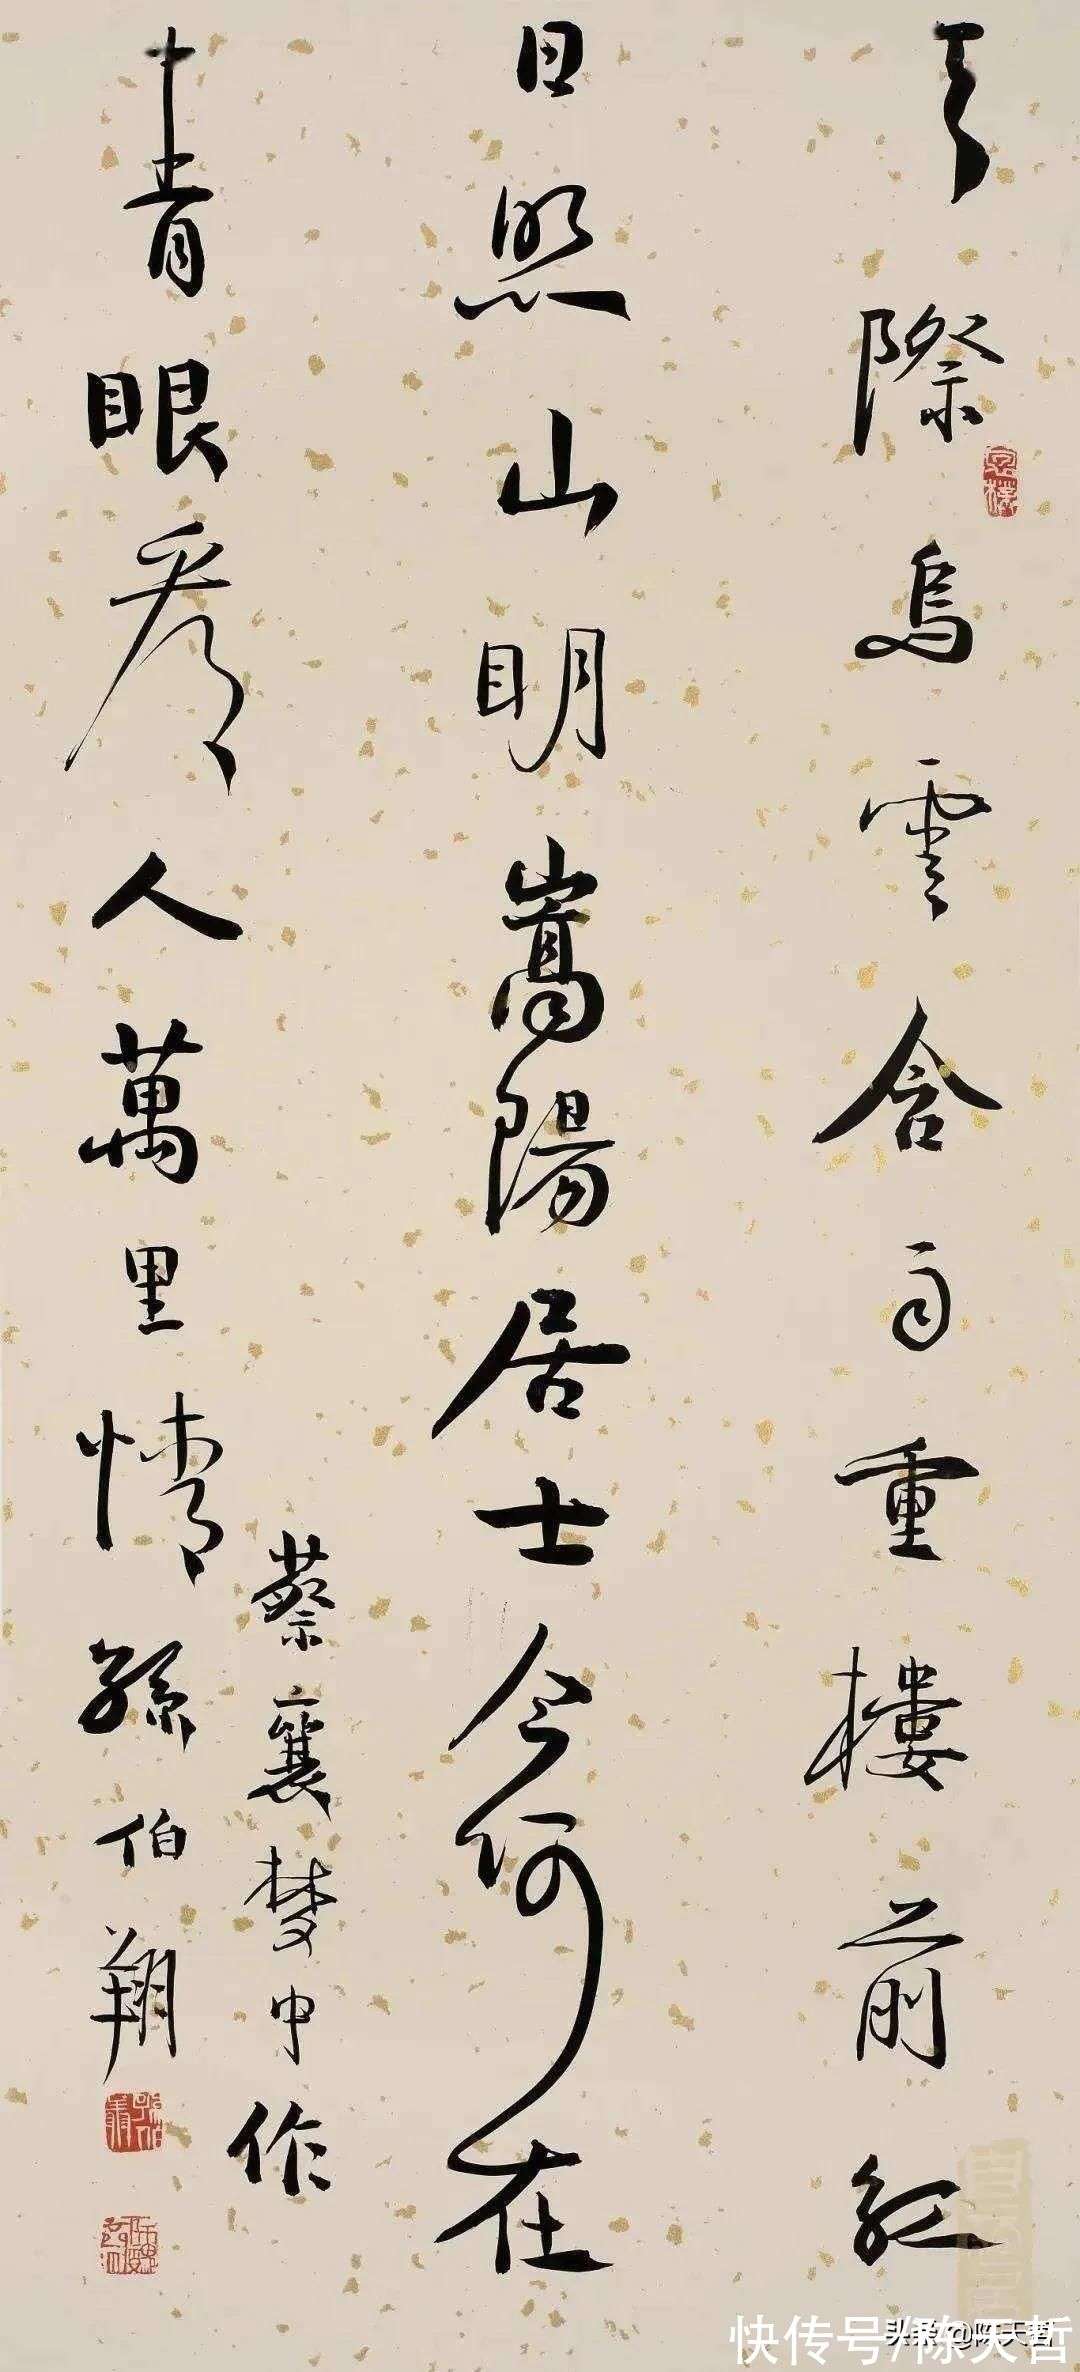 天際烏雲含雨重樓前紅
日照山明嵩陽居士今何在
青眼看人萬里情
蔡襄夢中作
孫伯翔
快传号/陈天哲
头条@陈天哲